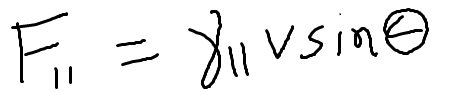 F₁₁ = γ₁₁ v sin θ